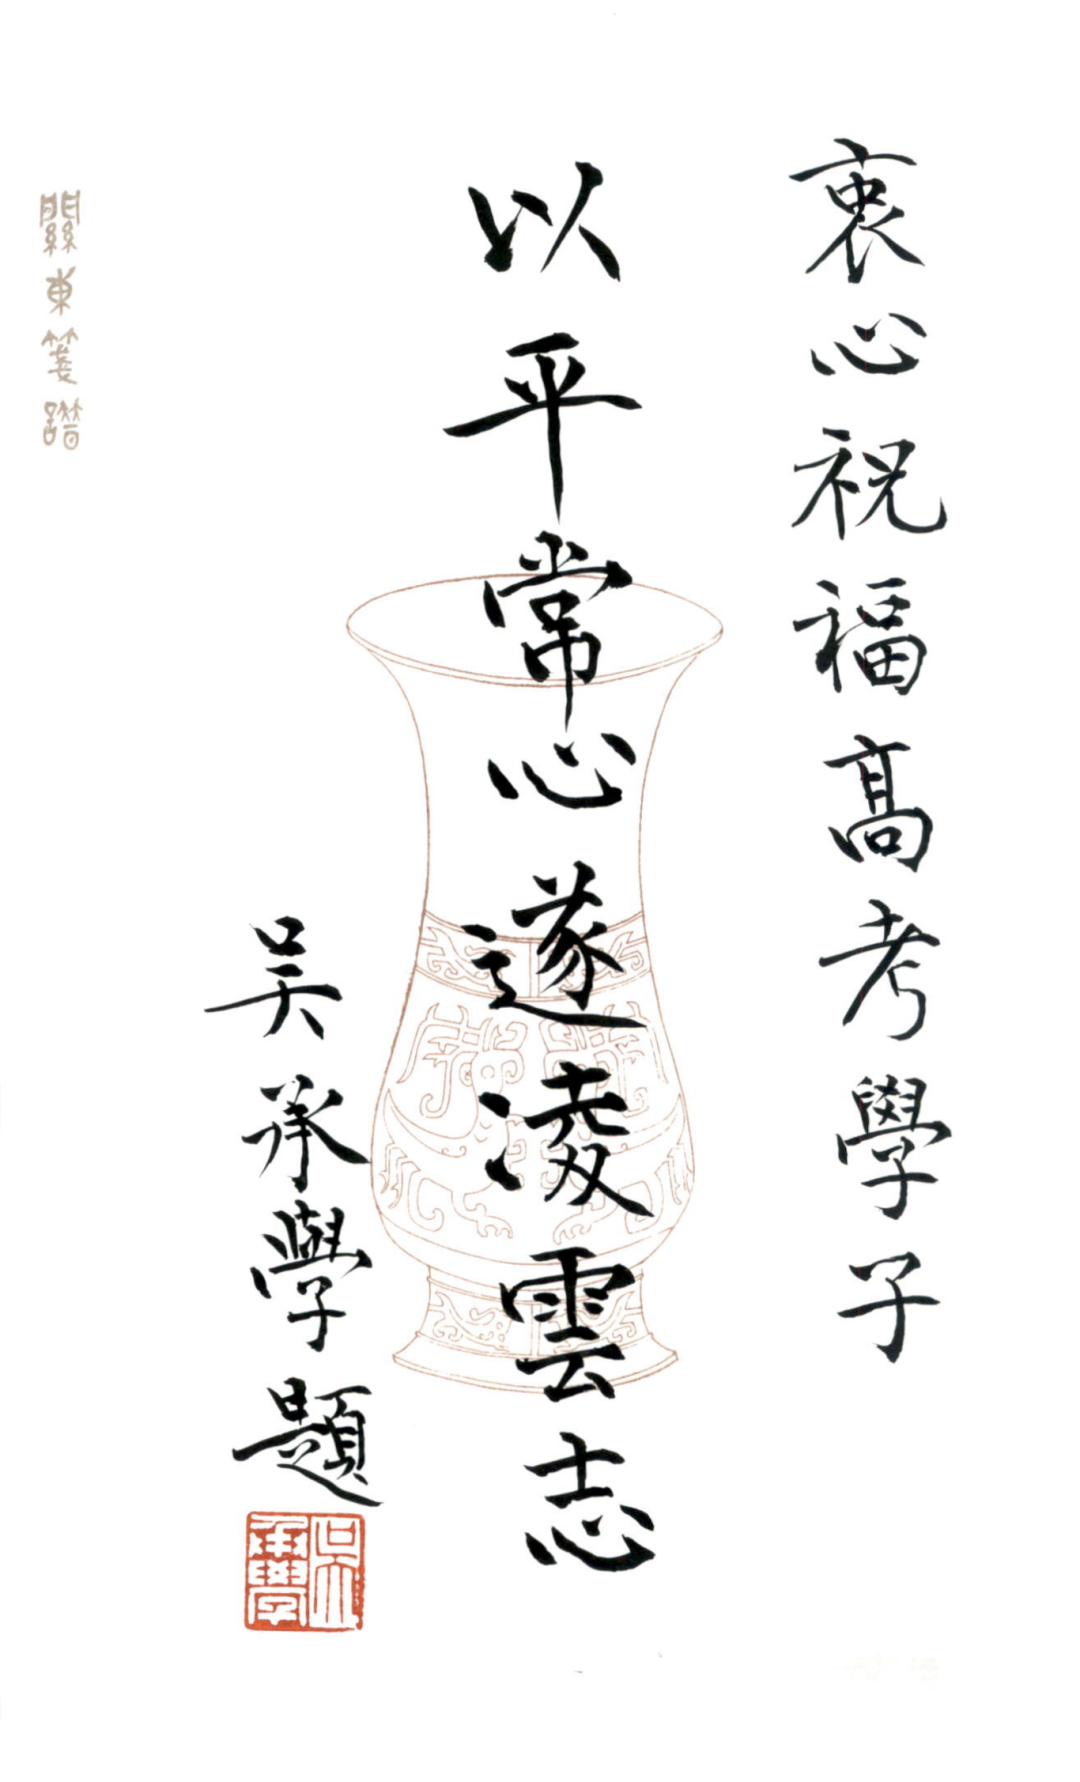 衷心祝福高考學子
以平常心遂淩雲志
吳承學題
吳承學
關東箋譜